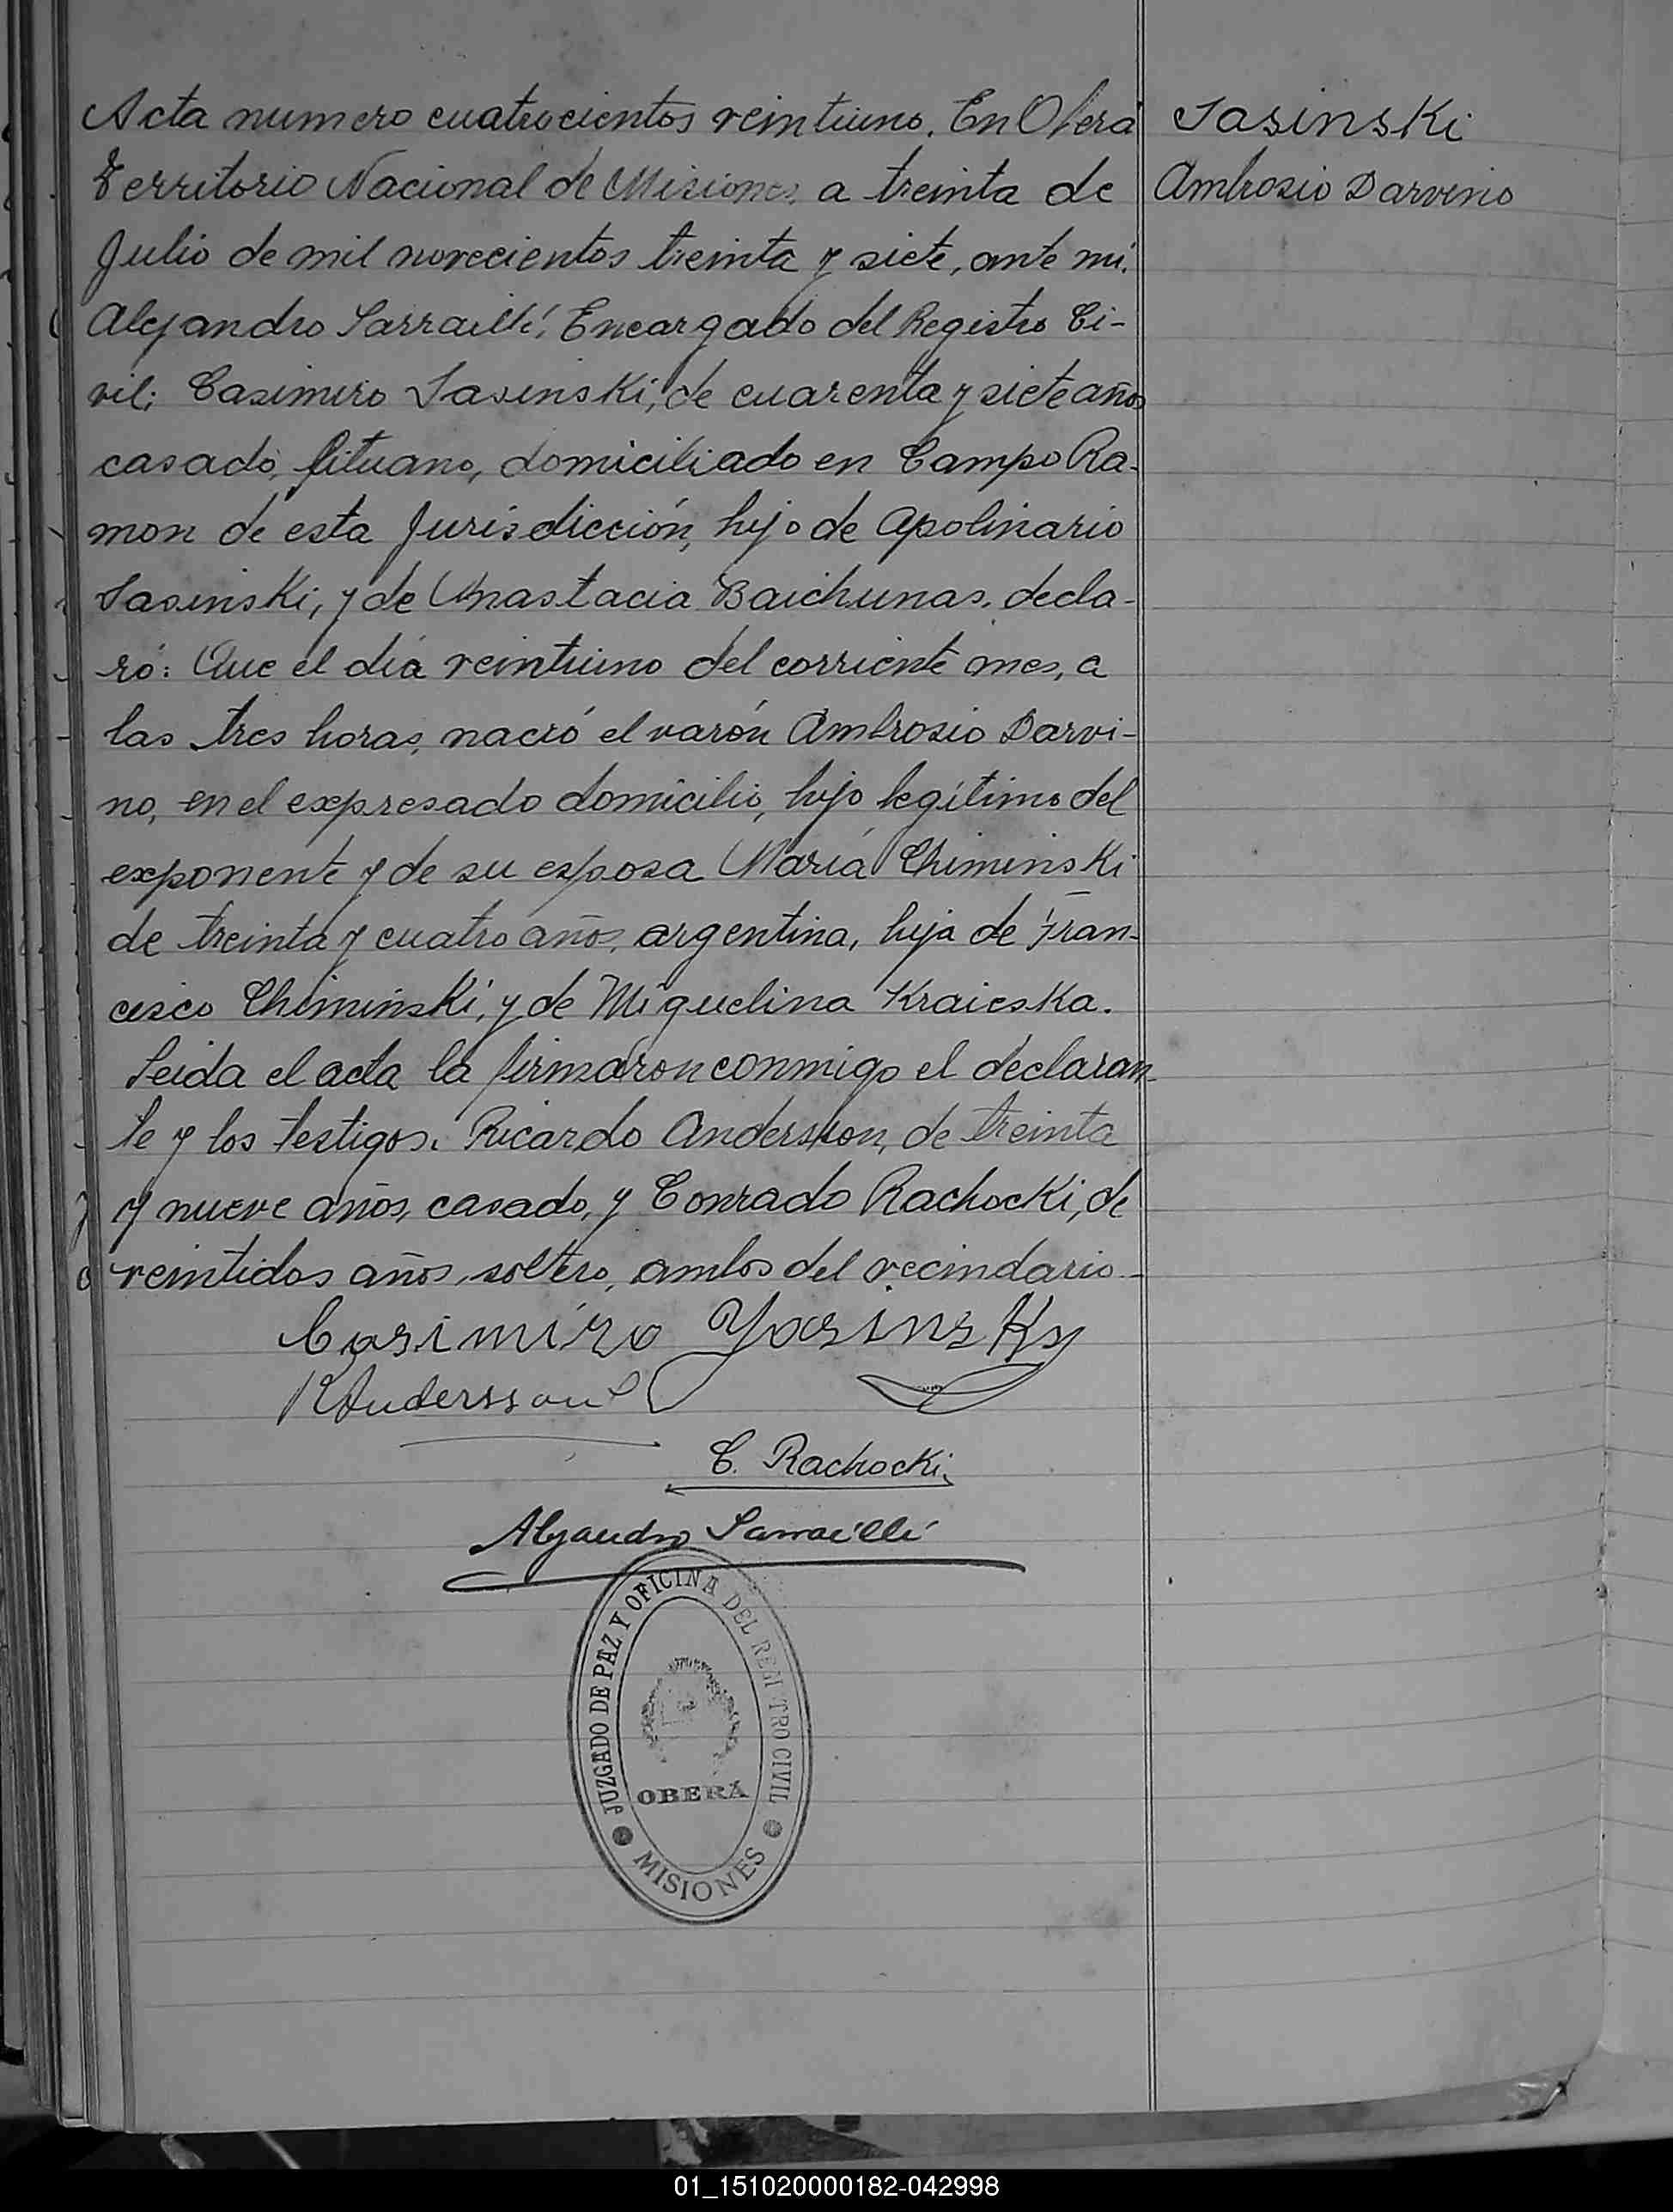 Acta numero cuatrocientos veintiuno. En Oberá
Territorio Nacional de Misiones, a treinta de
Julio de mil novecientos treinta y siete, ante mí.
Alejandro Sarraillé, Encargado del Registro Ci-
vil; Casimiro Jasinski, de cuarenta y siete años
casado, lituano, domiciliado en Campo Ra-
mon de esta Jurisdicción, hijo de Apolinario
Jasinski, y de Anastacia Baichunas, decla-
ró: Que el día veintiuno del corriente mes, a
las tres horas, nació el varón Ambrosio Darvi-
no, en el expresado domicilio, hijo legítimo del
exponente y de su esposa María Chiminski
de treinta y cuatro años, argentina, hija de Fran-
cisco Chiminski, y de Miguelina Kraieska.
Leida el acta la firmaron conmigo el declaran-
te y los testigos: Ricardo Andersson, de treinta
y nueve años, casado, y Conrado Rachocki, de
veintidos años, soltero, ambos del vecindario.-
Casimiro Yasinsky
R Andersson
C. Rachocki
Alejandro Sarraillé
JUZGADO DE PAZ Y OFICINA DEL REGISTRO CIVIL
OBERÁ
MISIONES
Jasinski
Ambrosio Darvino
01_151020000182-042998